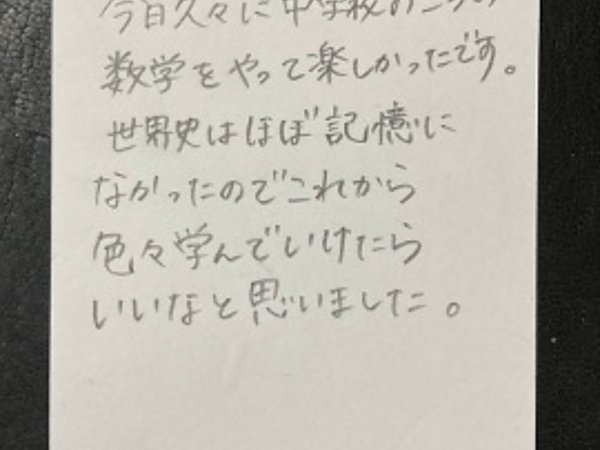 今日久々に中学校のころの
数学をやって楽しかったです。
世界史はほぼ記憶に
なかったのでこれから
色々学んでいけたら
いいなと思いました。